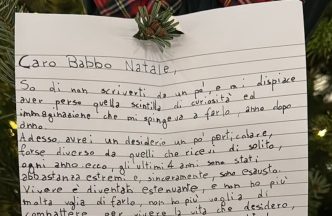 Caro Babbo Natale,
So di non scriverti da un po', e mi dispiace
aver perso quella scintilla di curiosità ed
immaginazione che mi spingeva a farlo, anno dopo
anno.
Adesso avrei un desiderio un po' particolare,
forse diverso da quelli che ricevi di solito,
ogni anno. ecco, gli ultimi 4 anni sono stati
abbastanza estremi e, sinceramente, sono esausta.
Vivere è diventato estenuante, e non ho più
molta voglia di farlo, non ho più voglia di
combattere per vivere la vita che desidero,